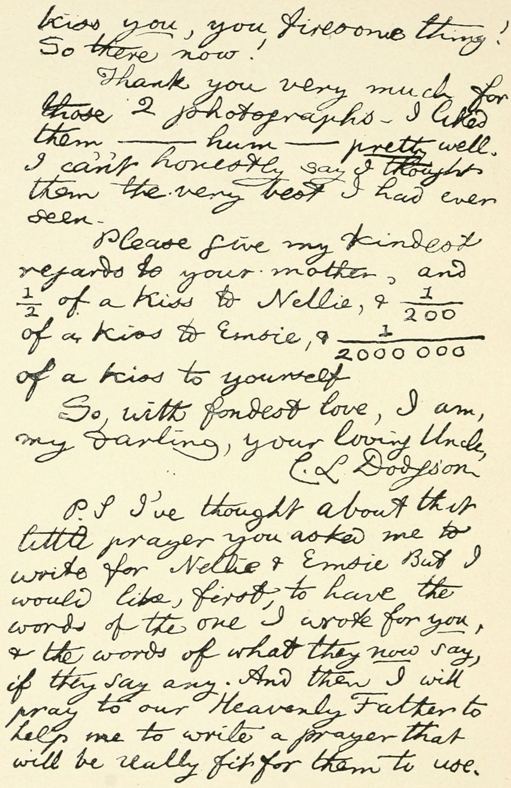 kiss you, you tiresome thing!
So there now!
Thank you very much for
those 2 photographs - I liked
them —— hum —— pretty well.
I can't honestly say I thought
them the very best I had ever
seen.
Please give my kindest
regards to your mother, and
1/2 of a kiss to Nellie, & 1/200
of a kiss to Emsie, & 1/2000000
of a kiss to yourself
So, with fondest love, I am,
my darling, your loving Uncle,
C. L. Dodgson
P.S I've thought about that
little prayer you asked me to
write for Nellie & Emsie But I
would like, first, to have the
words of the one I wrote for you,
& the words of what they now say,
if they say any. And then I will
pray to our Heavenly Father to
help me to write a prayer that
will be really fit for them to use.